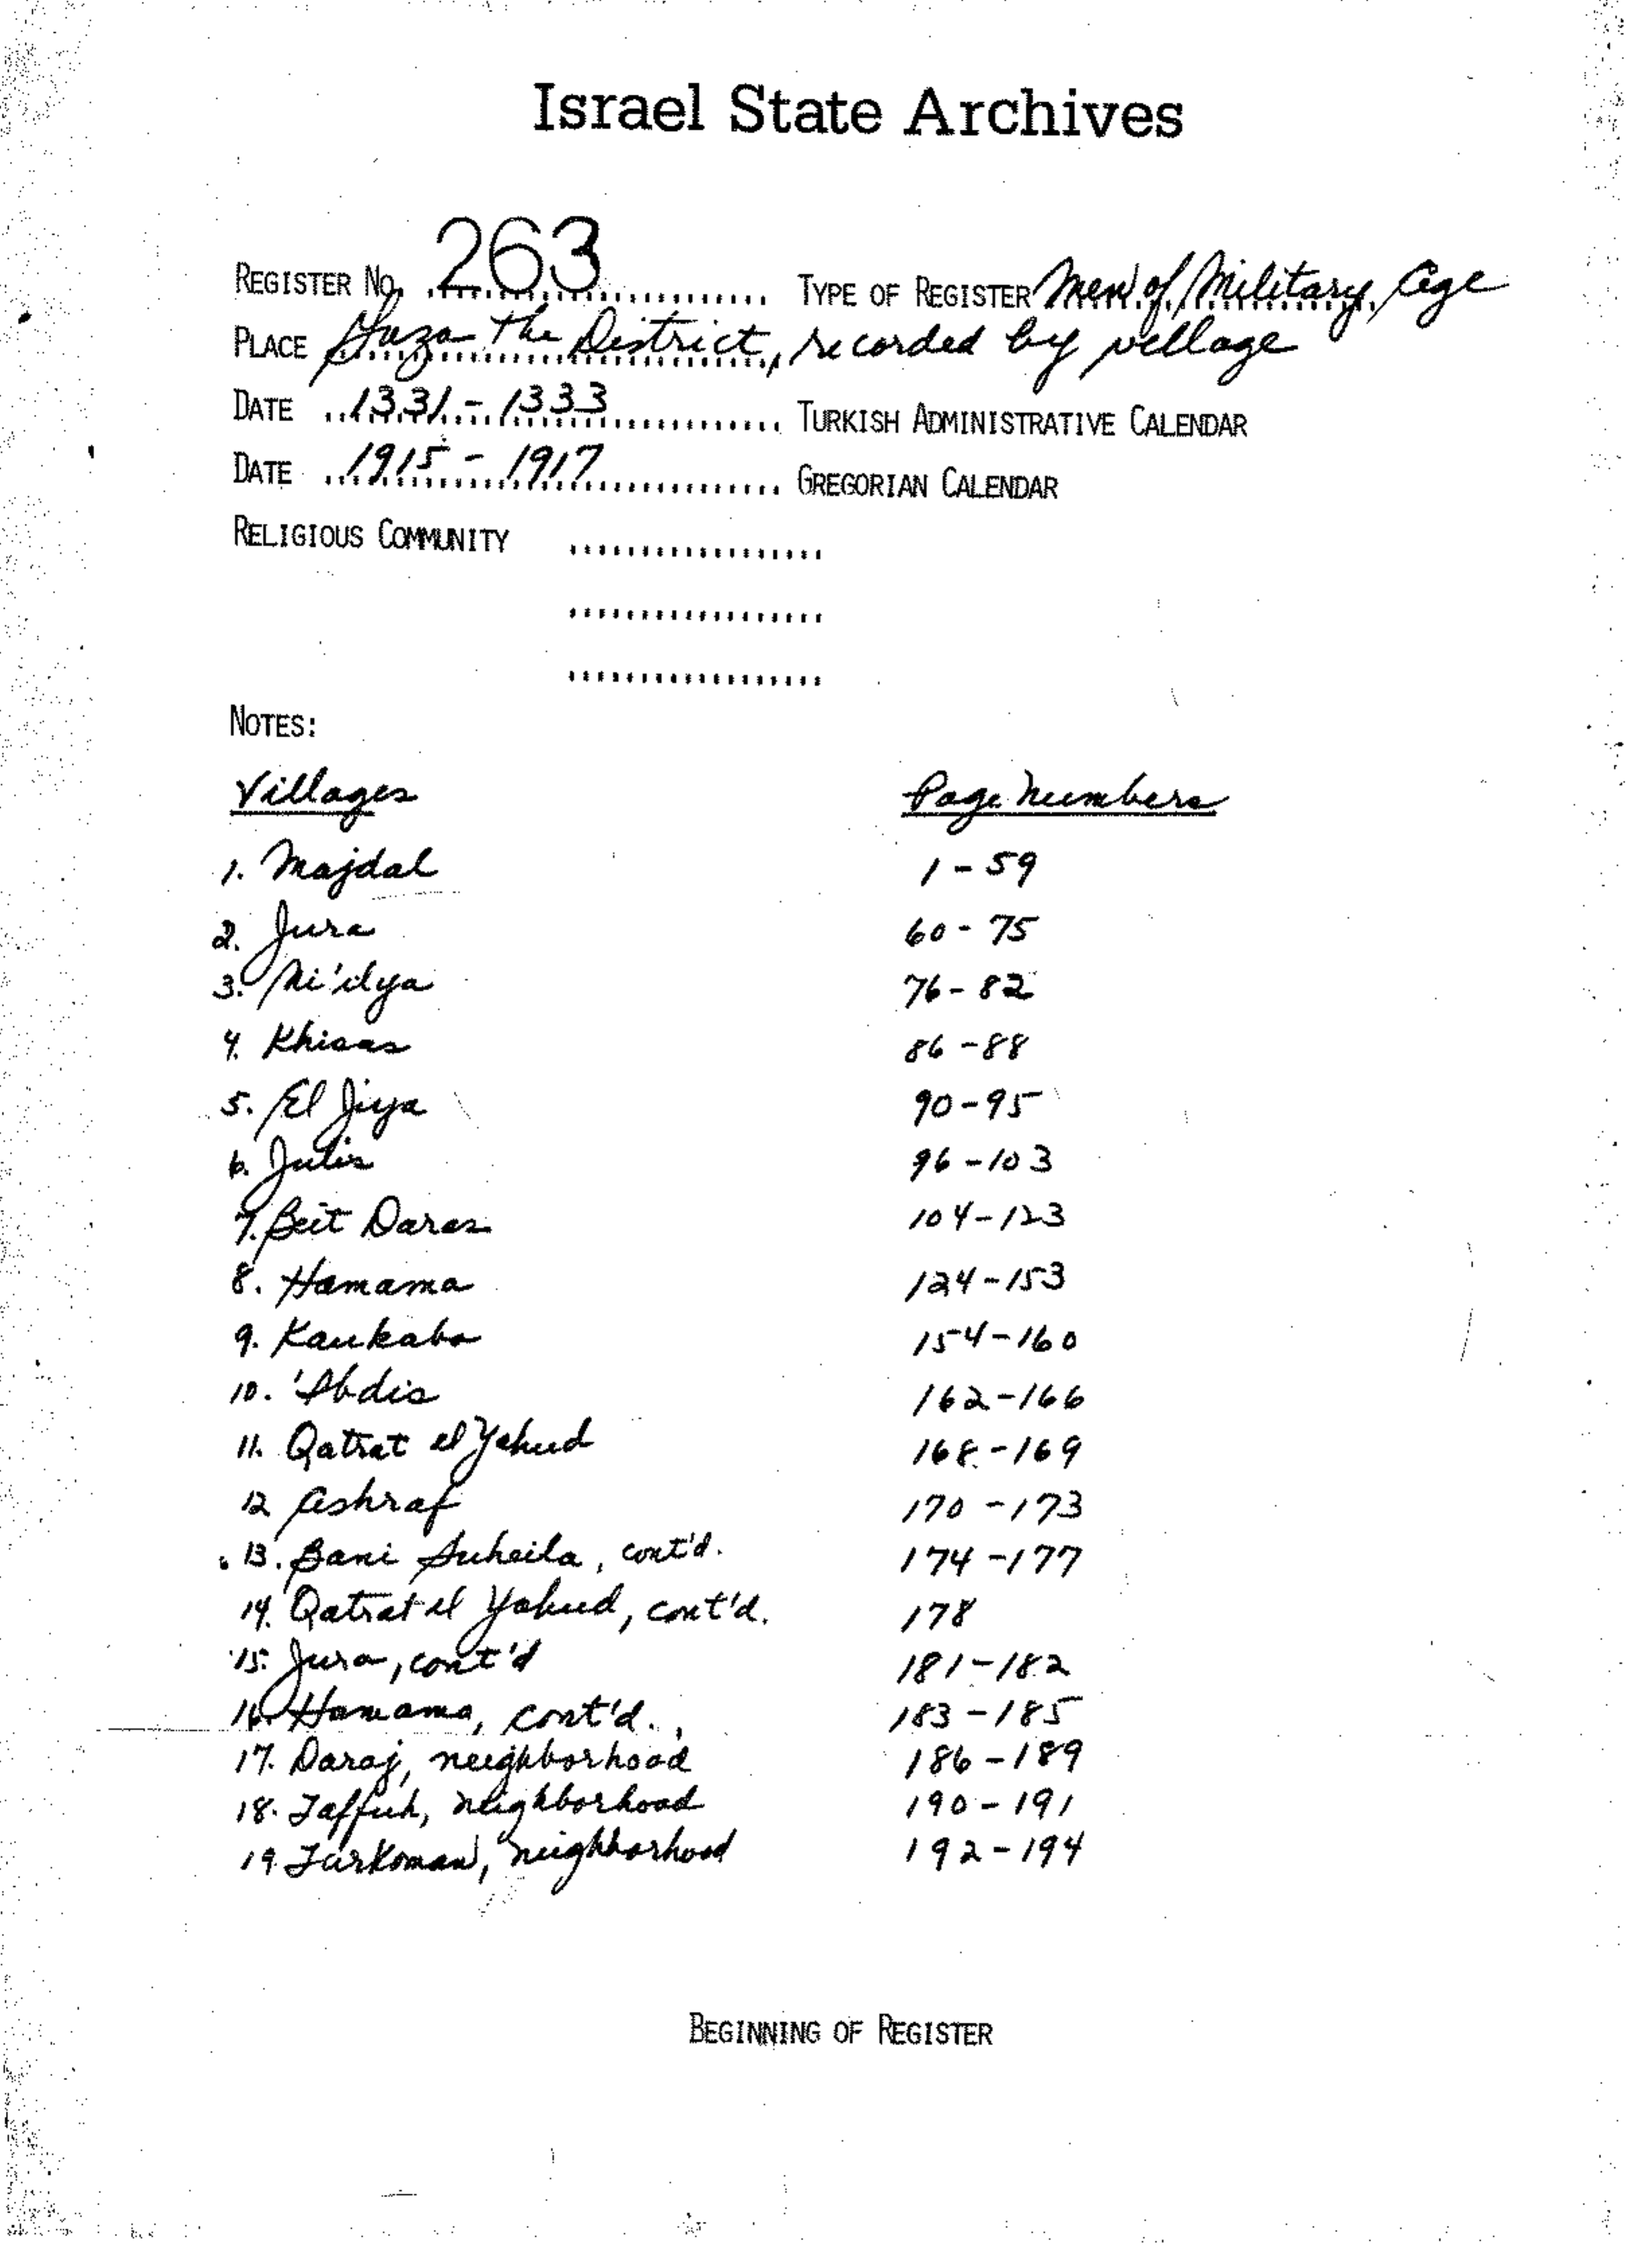 Israel State Archives
REGISTER NO. 263 TYPE OF REGISTER Men of Military Age
PLACE Gaza The District, recorded by village
DATE 1331 - 1333 TURKISH ADMINISTRATIVE CALENDAR
DATE 1915 - 1917 GREGORIAN CALENDAR
RELIGIOUS COMMUNITY
NOTES:
Villages Page Numbers
1. Majdal 1 - 59
2. Jura 60 - 75
3. Ni'ilya 76 - 82
4. Khisas 86 - 88
5. El Jiya 90 - 95
6. Julis 96 - 103
7. Beit Daras 104 - 123
8. Hamama 124 - 153
9. Kaukaba 154 - 160
10. 'Ibdis 162 - 166
11. Qatrat el Yahud 168 - 169
12 Ashraf 170 - 173
13. Bani Suheila, cont'd. 174 - 177
14. Qatrat el Yahud, cont'd. 178
15. Jura, cont'd 181 - 182
16. Hamama, cont'd. 183 - 185
17. Daraj, neighborhood 186 - 189
18. Taffuh, neighborhood 190 - 191
19. Turkoman, neighborhood 192 - 194
BEGINNING OF REGISTER